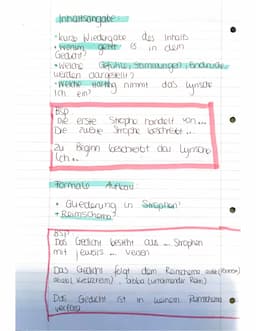 Inhaltsangabe
• kurze Wiedergabe des Inhalts
• Worum geht es in dem
Gedicht?
• Welche Gefühle, Stimmungen, Eindrücke
werden dargestellt?
• Welche Haltung nimmt das lyrische
Ich ein?
BSP
Die erste Strophe handelt von...
Die zweite Strophe beschreibt...
Zu Beginn beschreibt das lyrische
Ich...
Formale Aufbau
• Gliederung in Strophen
• Reimschema
BSP
Das Gedicht besteht aus ... Strophen
mit jeweils ... Versen
Das Gedicht folgt dem Reimschema
abba (umarmender Reim)
Das Gedicht ist in keinem Reimschema
verfasst